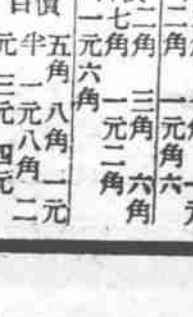 二角 一元角六
角二角 三角 六角
七角 一元二角
一元六角
價 五角 八角 一元
半 一元八角 二
元 三元 四元